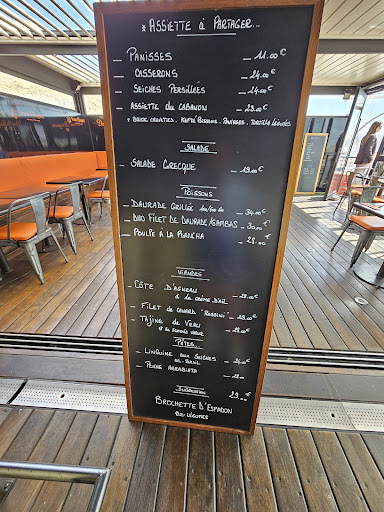 * ASSIETTE à PARTAGER...
- PANISSES — 11.00€
- CASSERONS — 24.00€
- SEICHES PERSILLÉES — 24.00€
- ASSIETTE du CABANON — 29.00€
SALADE
- SALADE GRECQUE — 19.00€
POISSONS
- DAURADE GRILLÉE — 34.00€
- DUO FILET DE DAURADE/GAMBAS — 30.00€
- POULPE À LA PLANCHA — 28.00
VIANDES
- CÔTE D'AGNEAU — 28.00€
à la CRÈME D'AIL
- FILET de CANARD "ROSSINI" — 29.00€
- TAJINE de VEAU — 28.00€
PÂTES...
- LINGUINE aux SEICHES — 24.00€
- PENNE ARRABIATA
SUGGESTION
BROCHETTE D'ESPADON 29.00€
LÉGUMES